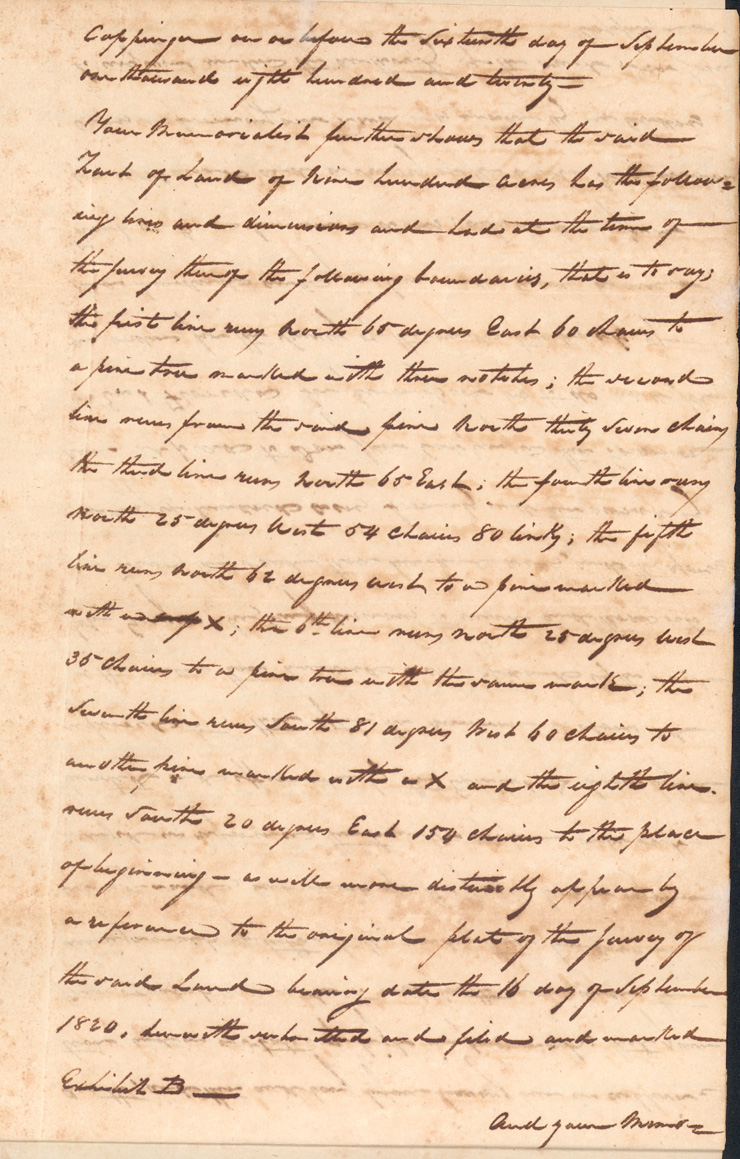 Coppinger on or before the Sixteenth day of September
one thousand eight hundred and twenty—
Your Memorialist further shows that the said
Tract of Land of Nine hundred Acres has the follow=
ing lines and dimensions and had at the time of
the survey thereof the following boundaries, that is to say;
the first line runs North 65 degrees East 60 chains to
a pine tree marked with three notches; the second
line runs from the said pine North thirty seven chains
the third line runs North 65 East; the fourth line runs
North 25 degrees West 54 chains 80 links; the fifth
line runs North 62 degrees west to a pine marked
with a X; the 6th line runs North 25 degrees West
35 chains to a pine tree with the same mark; the
Seventh line runs South 81 degrees West 60 chains to
another pine marked with a X and the eighth line
runs South 20 degrees East 154 chains to the place
of beginning — as will more distinctly appear by
a reference to the original plat of the survey of
the said Land bearing date the 16 day of September
1820, herewith submitted and filed and marked
Exhibit B —
And your Memo=